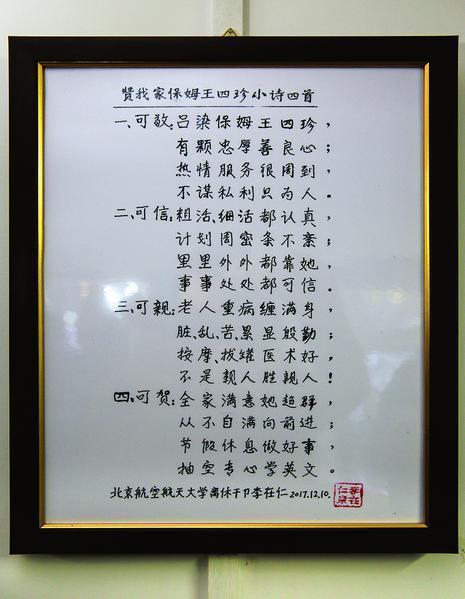 赞我家保姆王四珍小诗四首
一、可敬:吕梁保姆王四珍,
有颗忠厚善良心;
热情服务很周到,
不谋私利只为人。
二、可信:粗活、细活都认真,
计划周密条不紊;
里里外外都靠她,
事事处处都可信。
三、可亲:老人重病缠满身,
脏、乱、苦、累显殷勤;
按摩、拔罐医术好,
不是亲人胜亲人!
四、可贺:全家满意她超群,
从不自满向前进;
节假休息做好事,
抽空专心学英文。
北京航空航天大学离休干卩李在仁 2017.12.10.